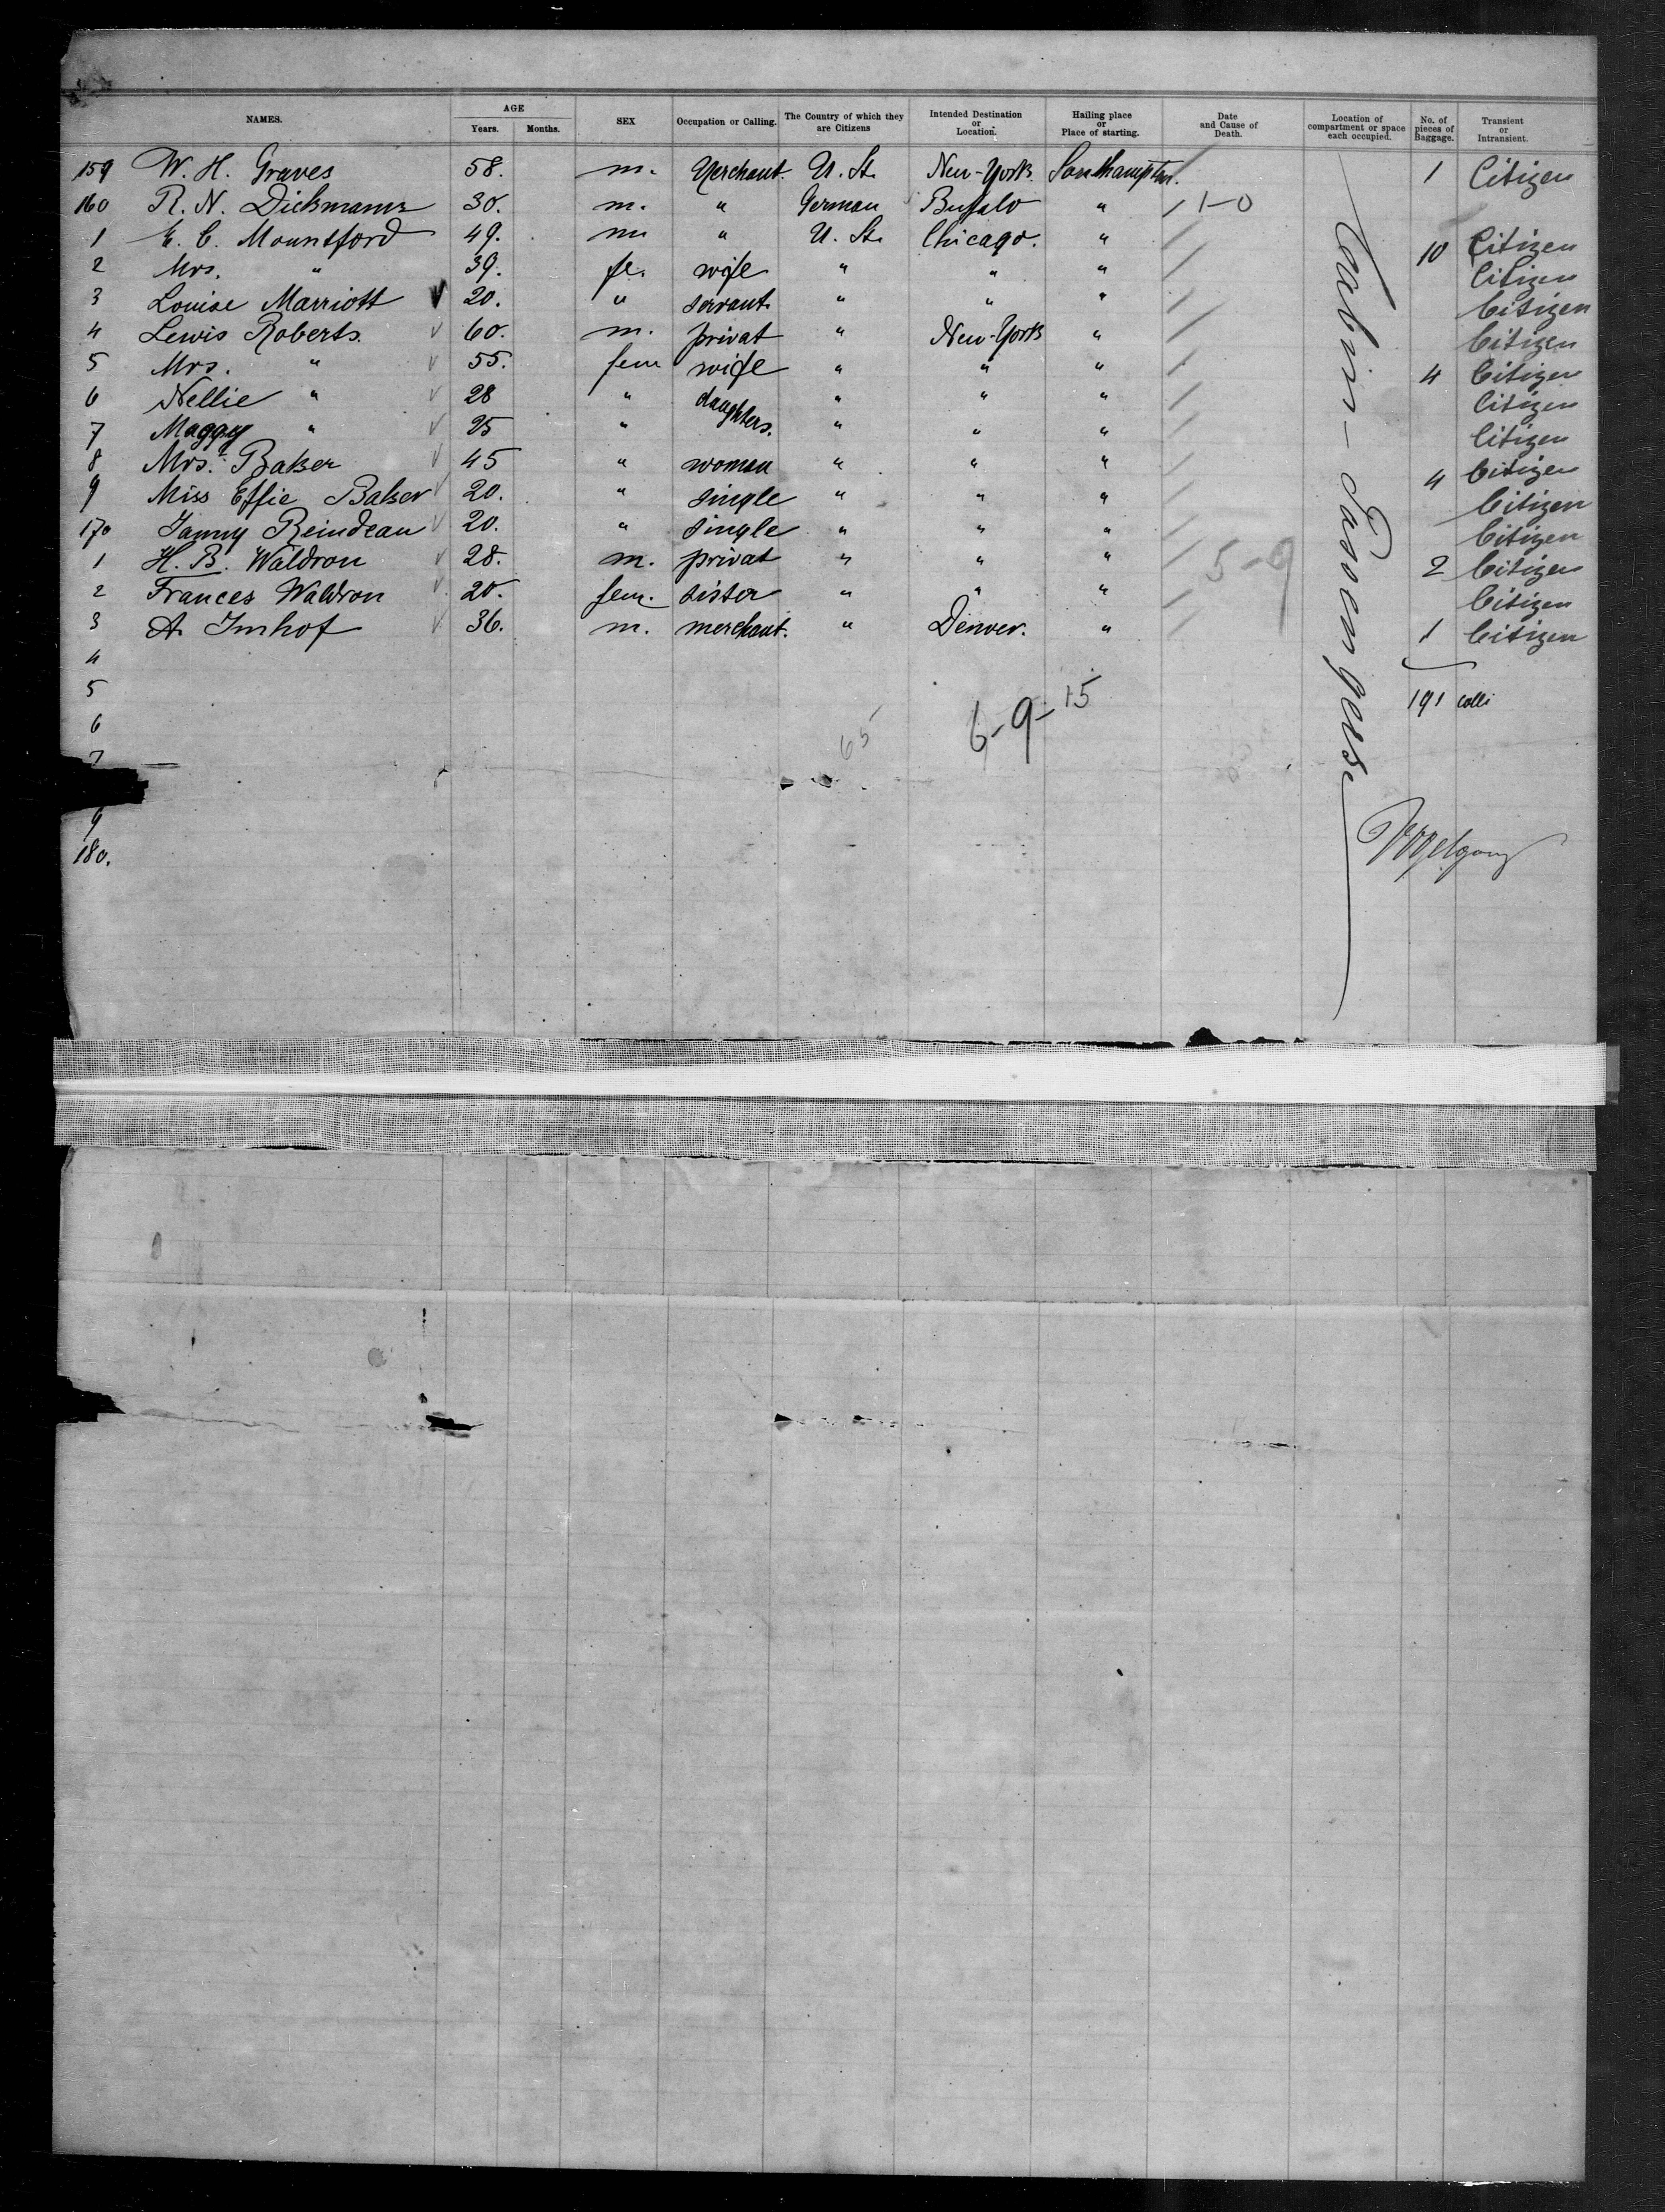 NAMES. AGE Years. Months. SEX Occupation or Calling. The Country of which they are Citizens Intended Destination or Location. Hailing place or Place of starting. Date and Cause of Death. Location of compartment or space each occupied. No. of pieces of Baggage. Transient or Intransient.
159 W. H. Graves 58. m. Merchant. U. St. New-York Southampton. 1 Citizen
160 R. N. Dickmann 30. m. " German Buffalo " 1-0
1 E. C. Mountford 49. m " U. St. Chicago. " 10 Citizen
2 Mrs. " 39. fe. wife " " " Citizen
3 Louise Marriott 20. " servant. " " " Citizen
4 Lewis Roberts. 60. m. privat " New-York " Citizen
5 Mrs. " 55. fem wife " " " 4 Citizen
6 Nellie " 28 " daughters. " " " Citizen
7 Maggy " 25 " " " " Citizen
8 Mrs. Baker 45 " woman " " " 4 Citizen
9 Miss Effie Baker 20. " single " " " Citizen
170 Fanny Reindeau 20. " single " " " Citizen
1 H. B. Waldron 28. m. privat " " " 5-9 2 Citizen
2 Frances Waldron 20. fem. sister " " " Citizen
3 A. Imhof 36. m. merchant. " Denver. " 1 Citizen
4
5 191 colli
6
7
9
180.
6-9-15
65
Cabin-Passengers.
Vogelgang